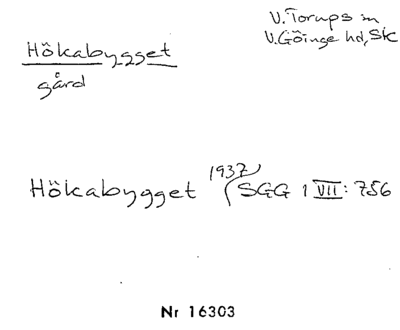 V. Torups sn
V. Göinge hd, Sk
Hökabygget
gård
Hökabygget 1937 SGG 1 VII: 756
Nr 16303